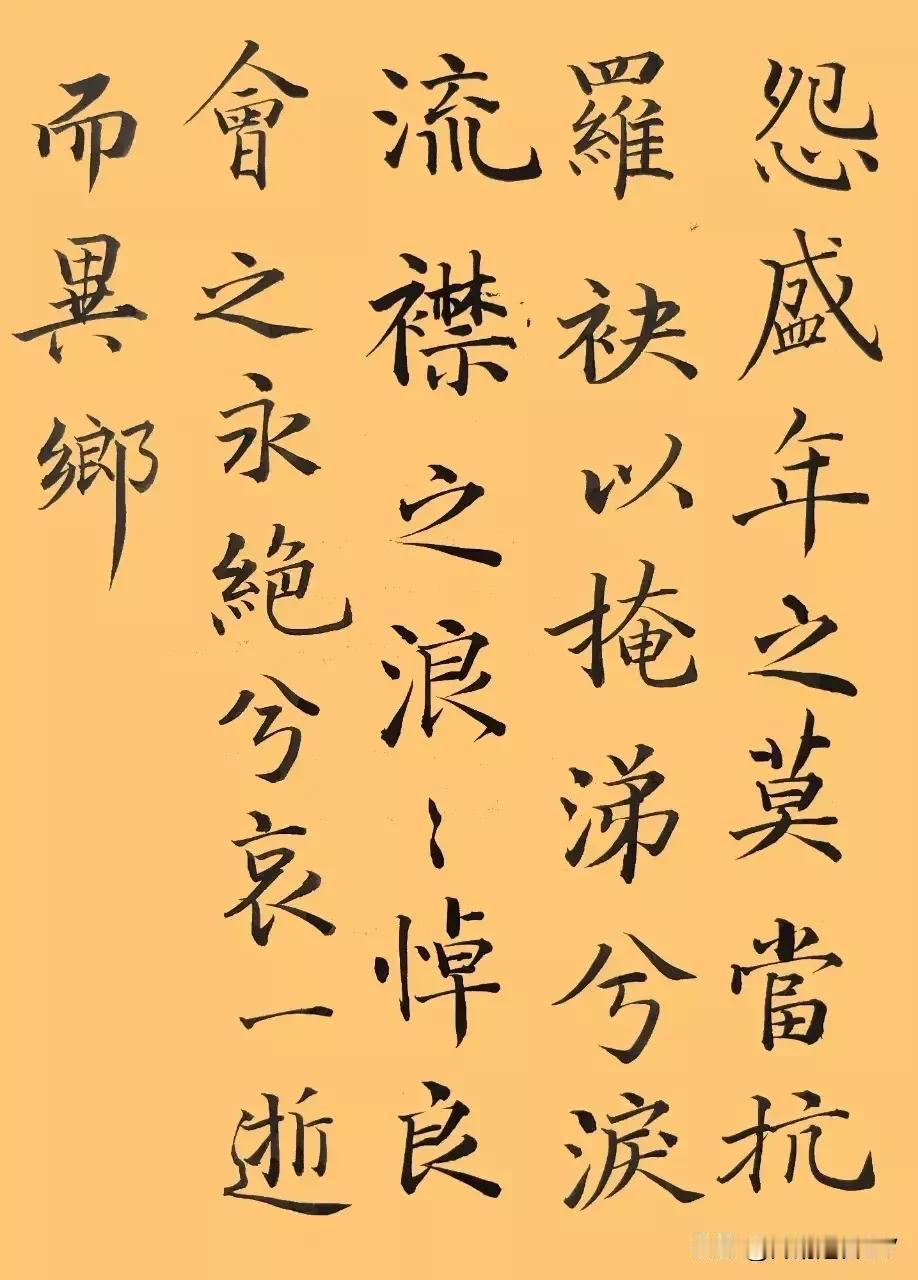 怨盛年之莫當抗
羅袂以掩涕兮淚
流襟之浪〻悼良
會之永絕兮哀一逝
而異鄉